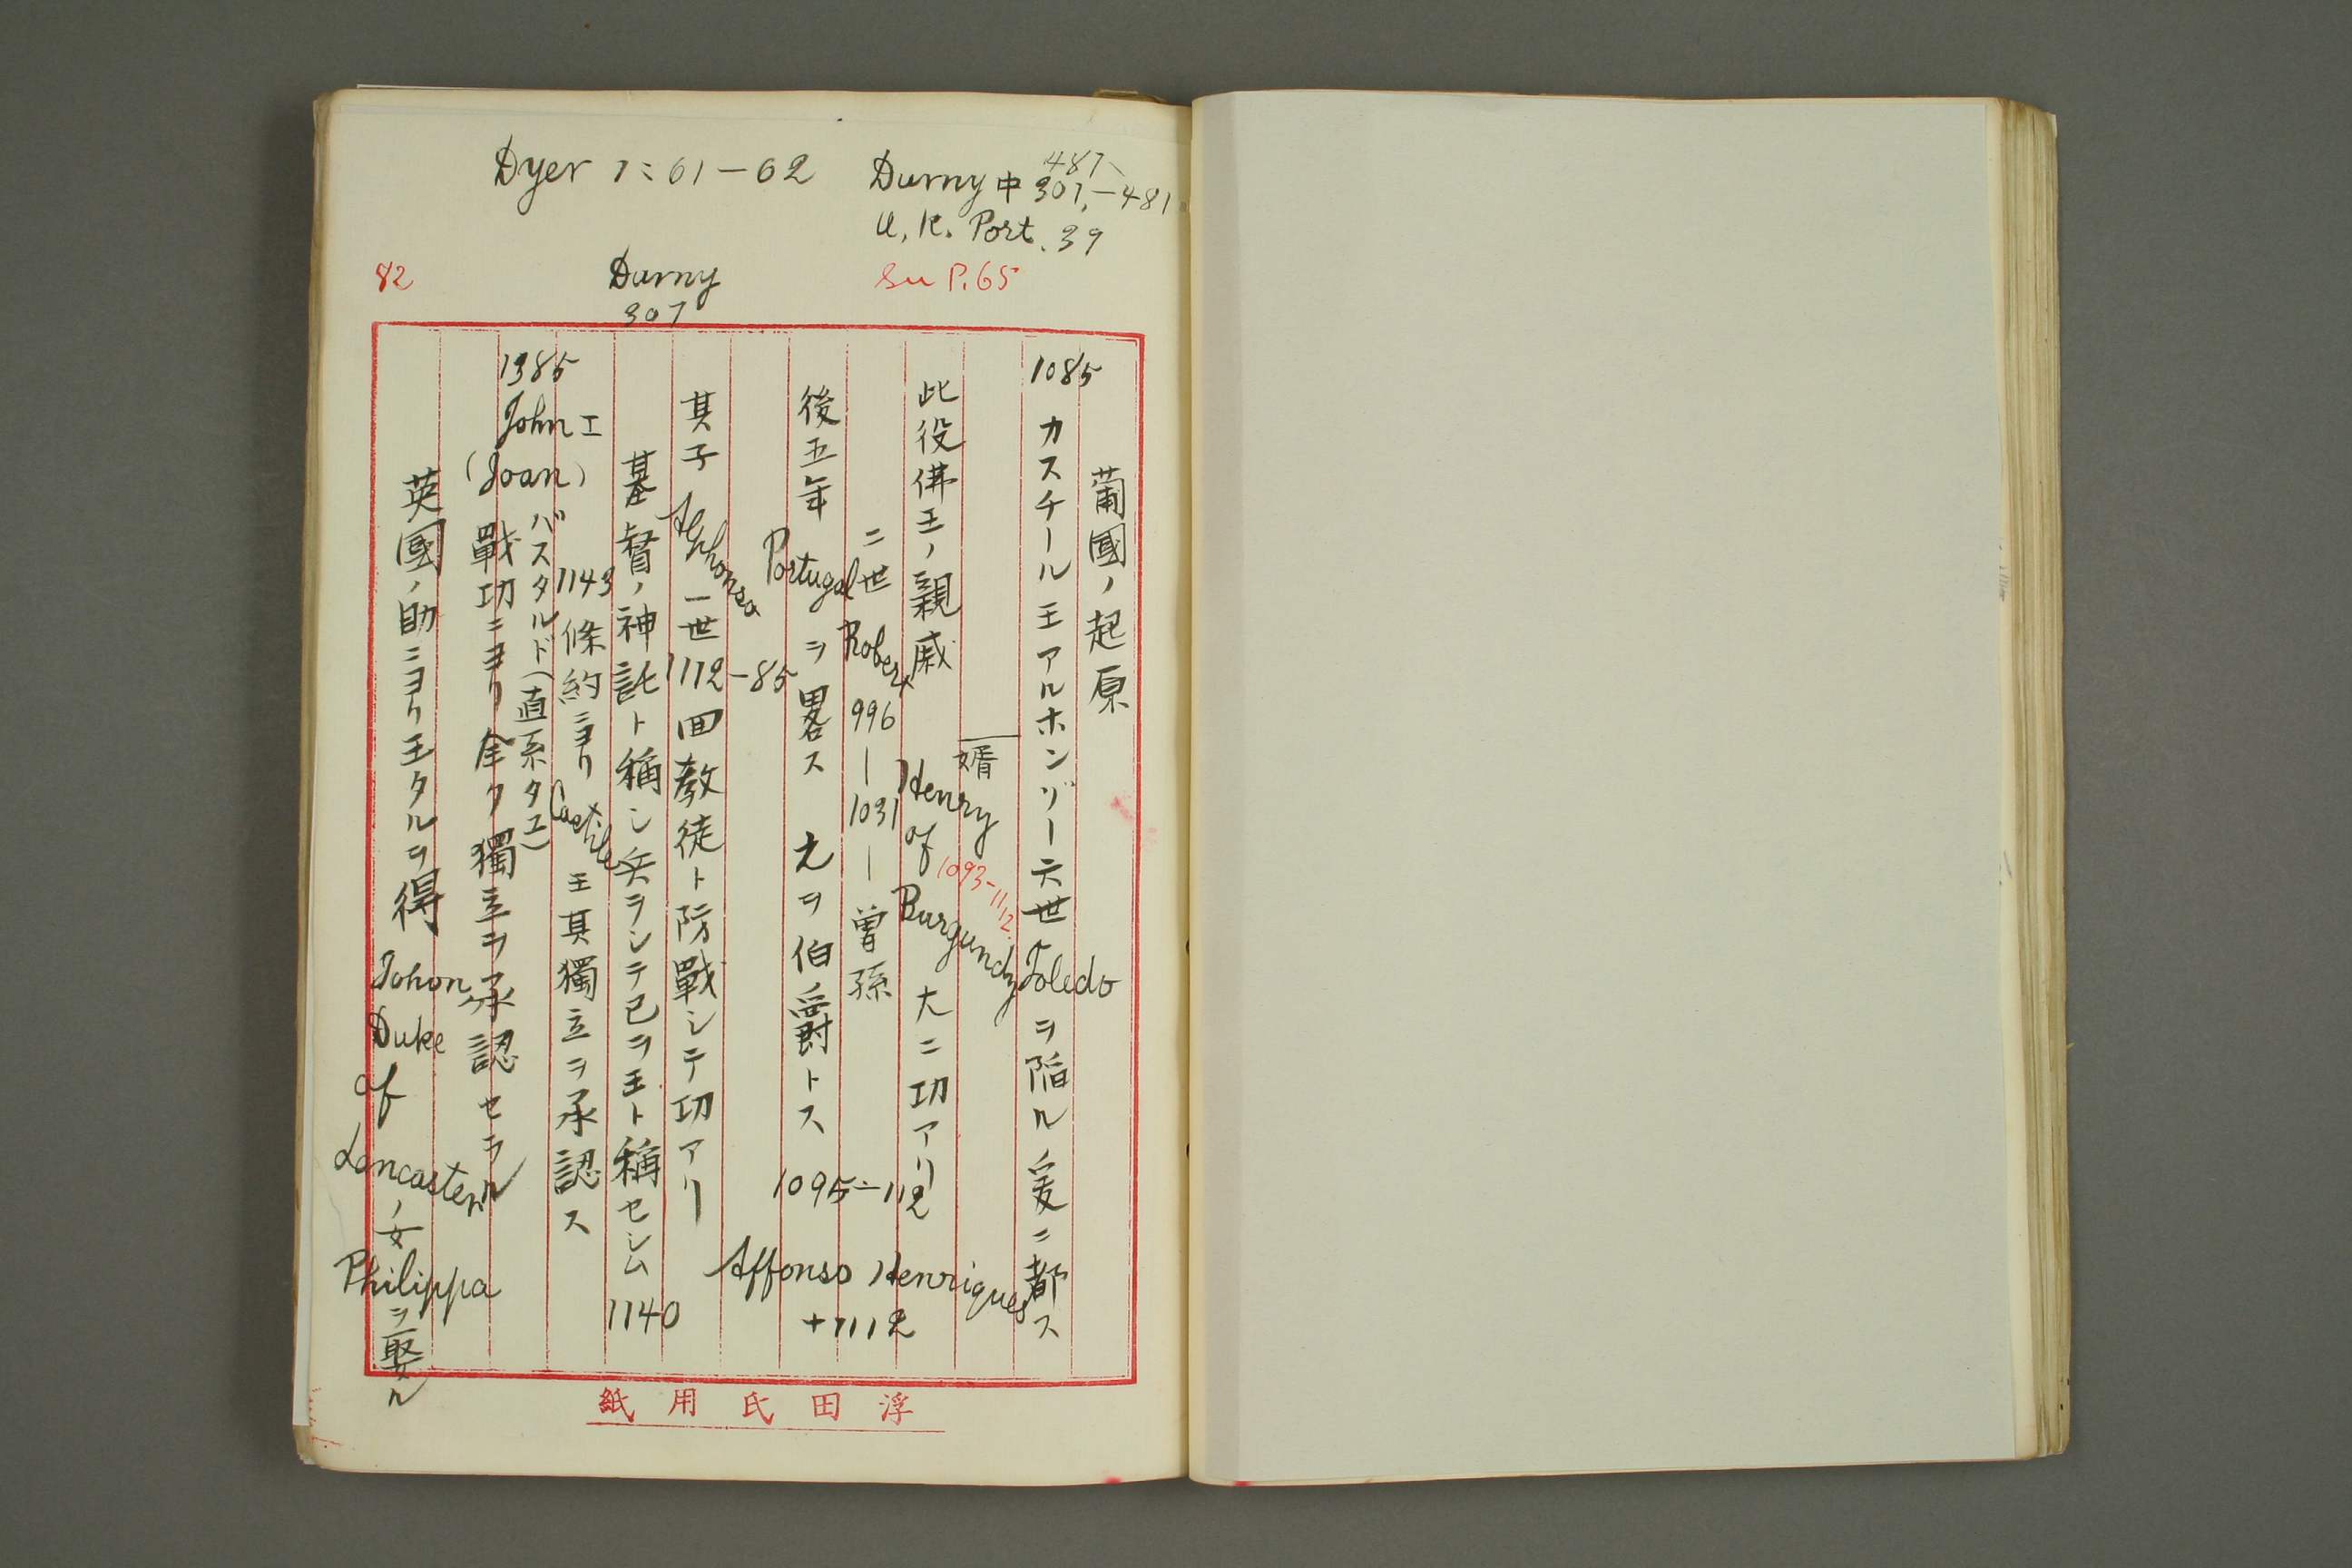 Dyer 1:61-62
Durny 中 307,-481
487
U. K. Port. 39
82
Durny
307
Su P.65
葡國ノ起原
1085 カスチール王アルホンゾー六世 Toledo ヲ陥ル爰ニ都ス
婿
1093-1112.
此役佛王ノ親戚 Henry of Burgundy 大ニ功アリ
二世 Robert 996-1031-曽孫
後五年 Portugal ヲ畧ス 之ヲ伯爵トス 1095-112
Affonso Henriques
+1112
其子 Alphonso 一世 1112-85 回教徒ト防戰シテ功アリ
基督ノ神託ト稱シ兵ヲシテ己ヲ王ト稱セシム 1140
1143 條約ニヨリ Castile 王其獨立ヲ承認ス
1385 John I (Joan) バスタルド(直系タエ)
戰功ニヨリ全ク獨立ヲ承認セラル
英國ノ助ニヨリ王タルヲ得 Johon Duke of Lancaster ノ女 Philippa ヲ娶ル
浮田氏用紙